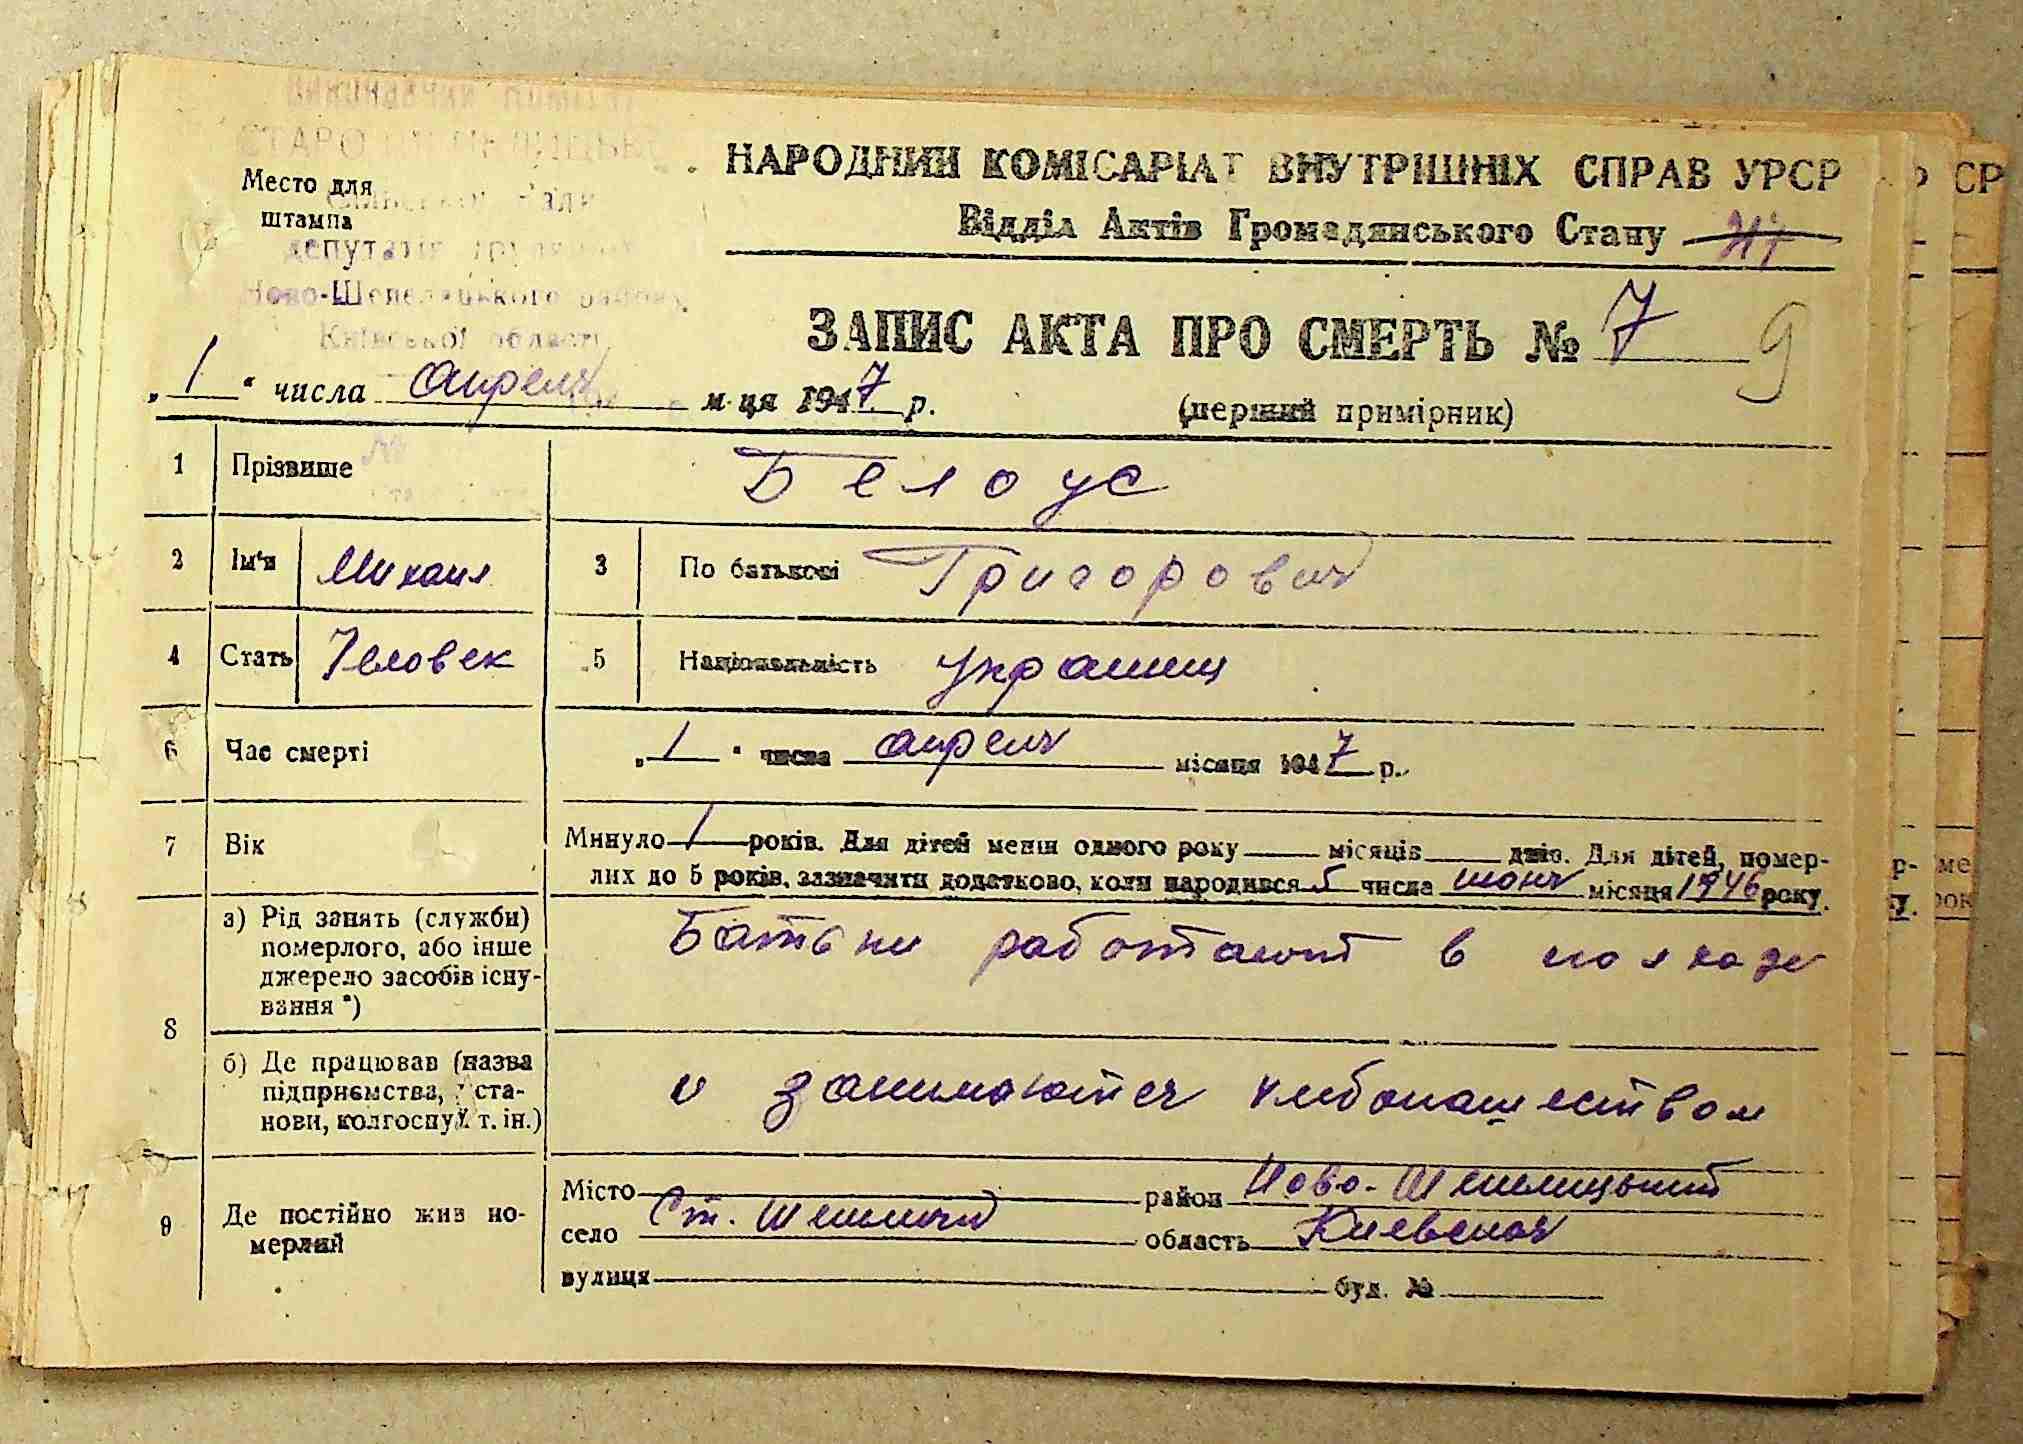 Место для
штампа
депутатів
Ново-Шепелицького району
Київської області
НАРОДНИЙ КОМІСАРІАТ ВНУТРІШНІХ СПРАВ УРСР
Відділ Актів Громадянського Стану
ЗАПИС АКТА ПРО СМЕРТЬ № 7 9
„ 1 “ числа апреля м-ця 1947 р.
(перший примірник)
1 Прізвище Белоус
2 Ім'я Михаил 3 По батькові Григорович
4 Стать Человек 5 Національність украинц
6 Час смерті „ 1 “ числа апреля місяця 1947 р.
7 Вік Минуло 1 років. Для дітей менш одного року місяців днів. Для дітей, помер-
лих до 5 років, зазначити додатково, коли народився 5 числа июня місяця 1946 року.
8 а) Рід занять (служби)
померлого, або інше
джерело засобів існу-
вання *)
Батьки работают в колхозе
б) Де працював (назва
підприємства, уста-
нови, колгоспу й т. ін.)
и занимаются хлебопашеством
9 Де постійно жив по-
мерлий
Місто район Ново-Шепелицький
село Ст. Шепеличи область Киевская
вулиця буд. №